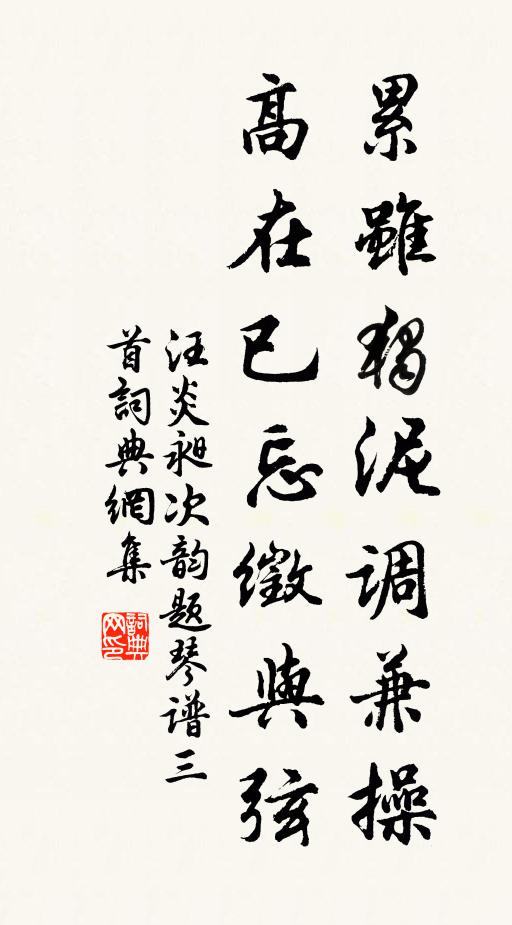 累雖獨泥調兼操
高在已忘徽與弦
汪炎昶次韵题琴譜三
首詞典網集
詞典
网印